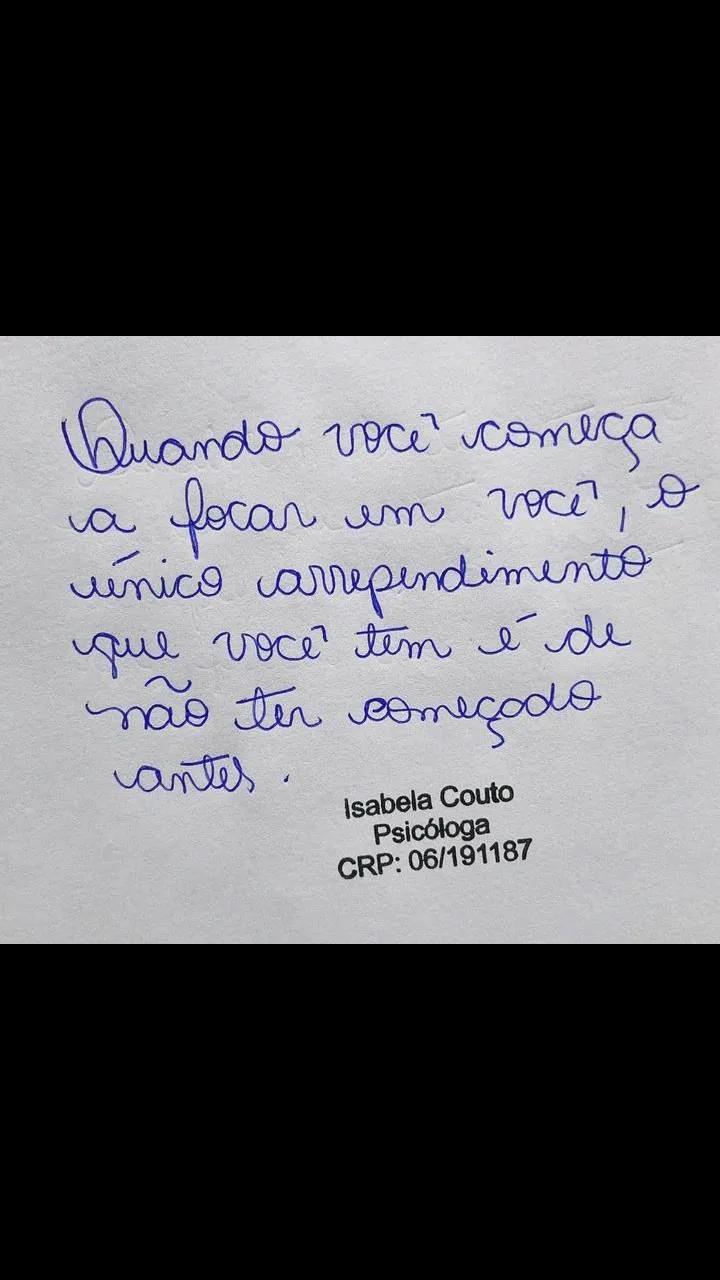 Quando você começa
a focar em você, o
único arrependimento
que você tem é de
não ter começado
antes.
Isabela Couto
Psicóloga
CRP: 06/191187